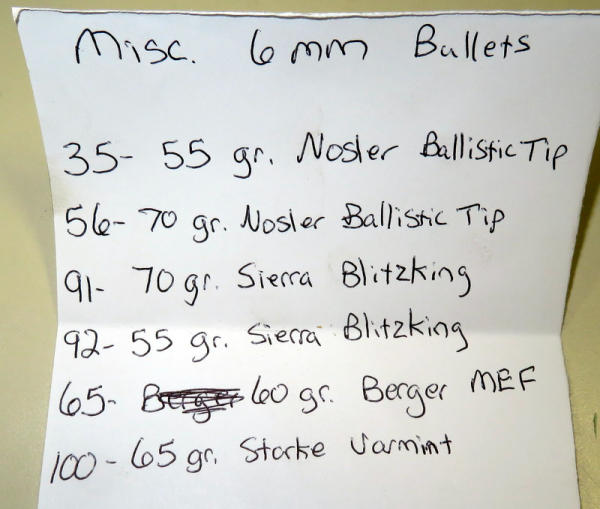 Misc. 6mm Bullets
35- 55 gr. Nosler Ballistic Tip
56- 70 gr. Nosler Ballistic Tip
91- 70 gr. Sierra Blitzking
92- 55 gr. Sierra Blitzking
65- Berger 60 gr. Berger MEF
100- 65 gr. Starke Varmint